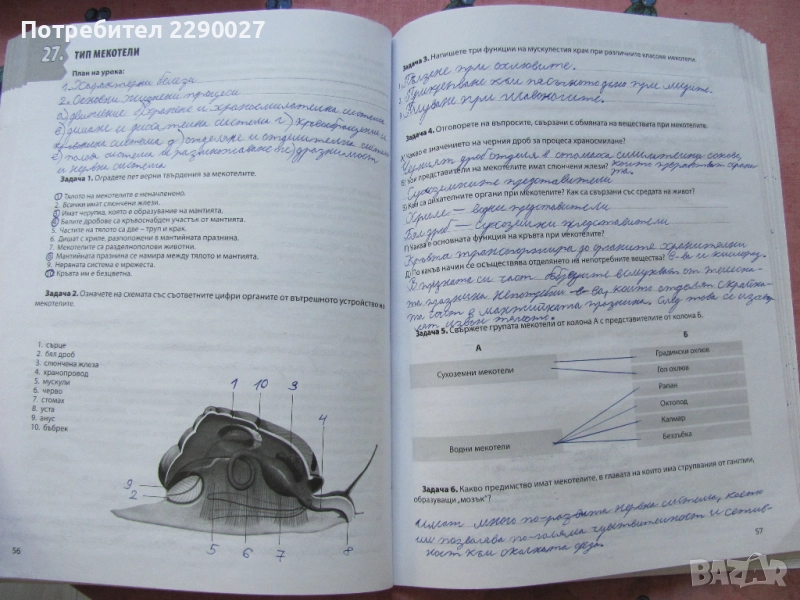 Потребител 2290027
27. ТИП МЕКОТЕЛИ
План на урока:
1. Характерни белези
2. Основни жизнени процеси
а) движение б) хранене и храносмилателна система
в) дишане и дихателна система г) кръвообращение и
кръвоносна система д) отделяне и отделителна система
е) полова система и размножаване ж) дразнимост
и нервна система
Задача 1. Оградете пет верни твърдения за мекотелите.
1. Тялото на мекотелите е неначленено.
2. Всички имат слюнчени жлези.
3. Имат черупка, която е образувание на мантията.
4. Белите дробове са кръвоснабден участък от мантията.
5. Частите на тялото са две – труп и крак.
6. Дишат с хриле, разположени в мантийната празнина.
7. Мекотелите са разделнополови животни.
8. Мантийната празнина се намира между тялото и мантията.
9. Нервната система е мрежеста.
10. Кръвта им е безцветна.
Задача 2. Означете на схемата със съответните цифри органите от вътрешното устройство на
мекотелите.
1. сърце
2. бял дроб
3. слюнчена жлеза
4. хранопровод
5. мускули
6. черво
7. стомах
8. уста
9. анус
10. бъбрек
1 10 3
4
9
2
5 6 7 8
56
Задача 3. Напишете три функции на мускулестия крак при различните класове мекотели.
1. Пълзене при охлювите.
2. Прикрепване към пясъчното дъно при мидите.
3. Плуване при главоногите.
Задача 4. Отговорете на въпросите, свързани с обмяната на веществата при мекотелите.
А) Какво е значението на черния дроб за процеса храносмилане?
Черният дроб отделя в стомаха смилателни сокове,
които преработват храната.
Б) Кои представители на мекотелите имат слюнчени жлези?
Сухоземните представители
В) Кои са дихателните органи при мекотелите? Как са свързани със средата на живот?
Хриле – водни представители
Бял дроб – сухоземни представители
Г) Каква е основната функция на кръвта при мекотелите?
Кръвта транспортира до органите хранителни
в-ва и кислород.
Д) По какъв начин се осъществява отделянето на непотребните вещества?
Задача 5. Свържете групата мекотели от колона А с представителите от колона Б.
А Б
Сухоземни мекотели
Водни мекотели
Градински охлюв
Гол охлюв
Рапан
Октопод
Калмар
Беззъбка
Задача 6. Какво предимство имат мекотелите, в главата на които има струпвания от ганглии,
образуващи „мозък“?
Имат много по-развита нервна система, която
им позволява по-голяма чувствителност и сетив-
ност към околната среда.
57
BAZAR